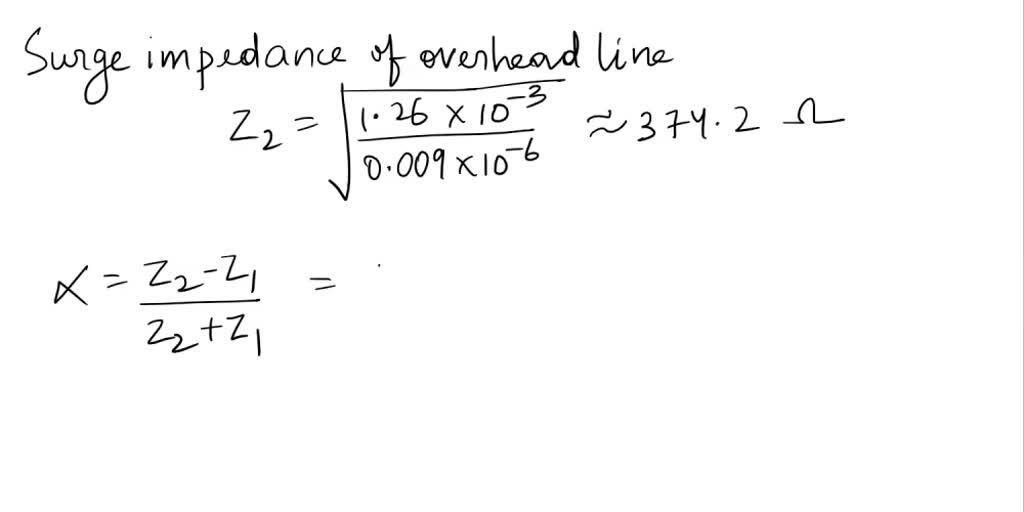 Surge impedance of overhead line
Z₂ = √(1.26 × 10⁻³ / 0.009 × 10⁻⁶) ≈ 374.2 Ω
α = (Z₂ - Z₁) / (Z₂ + Z₁) =